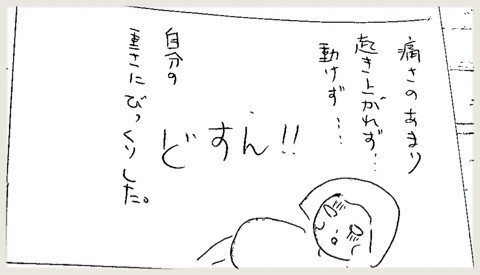 痛さのあまり
起き上がれず…
動けず…
どすん!!
自分の
重さにびっくりした。